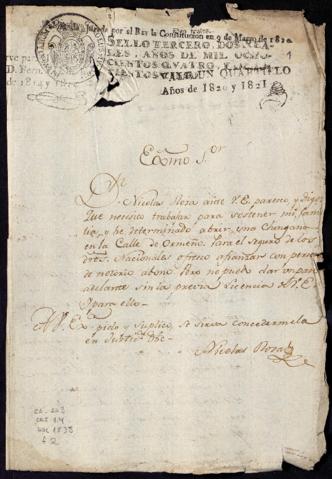 Jurada por el Rey la Constitucion en 9 de Marzo de 1820
SELLO TERCERO, DOS REA-
LES, AÑOS DE MIL OCHO-
CIENTOS QVATRO, Y
VALGA UN QUARTILLO
Años de 1820 y 1821
D. Fern
de 1814 y 18
Exmo Sor
Dn Nicolas Roza ante V.E. paresco, y digo
Que necesito trabajar para sostener mi fami
lia, y he determinado abrir una Chingana
en la Calle de Ormeño. Para el seguro de los
dros. Nacionales ofresco afianzar con persona
de notorio abono. Pero no puedo dar un paso
adelante sin la previa licencia de V.E.
y para ello
A V.E. pido y suplico, se sirva concedermela
en Justicia &c
Nicolas Roza